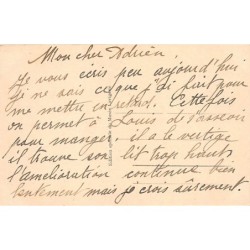 Mon cher Adrien,
Je vous écris peu aujourd'hui
je ne sais ce que j'ai fait pour
me mettre en retard. Cette fois
on permet à Louis de s'asseoir
pour manger. il a le vertige
il trouve son lit trop haut
l'amélioration continue bien
lentement mais je crois sûrement.